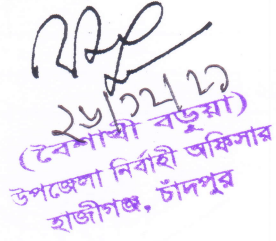 ২৬/১২/২১
(বৈশাখী বড়ুয়া)
উপজেলা নির্বাহী অফিসার
হাজীগঞ্জ, চাঁদপুর